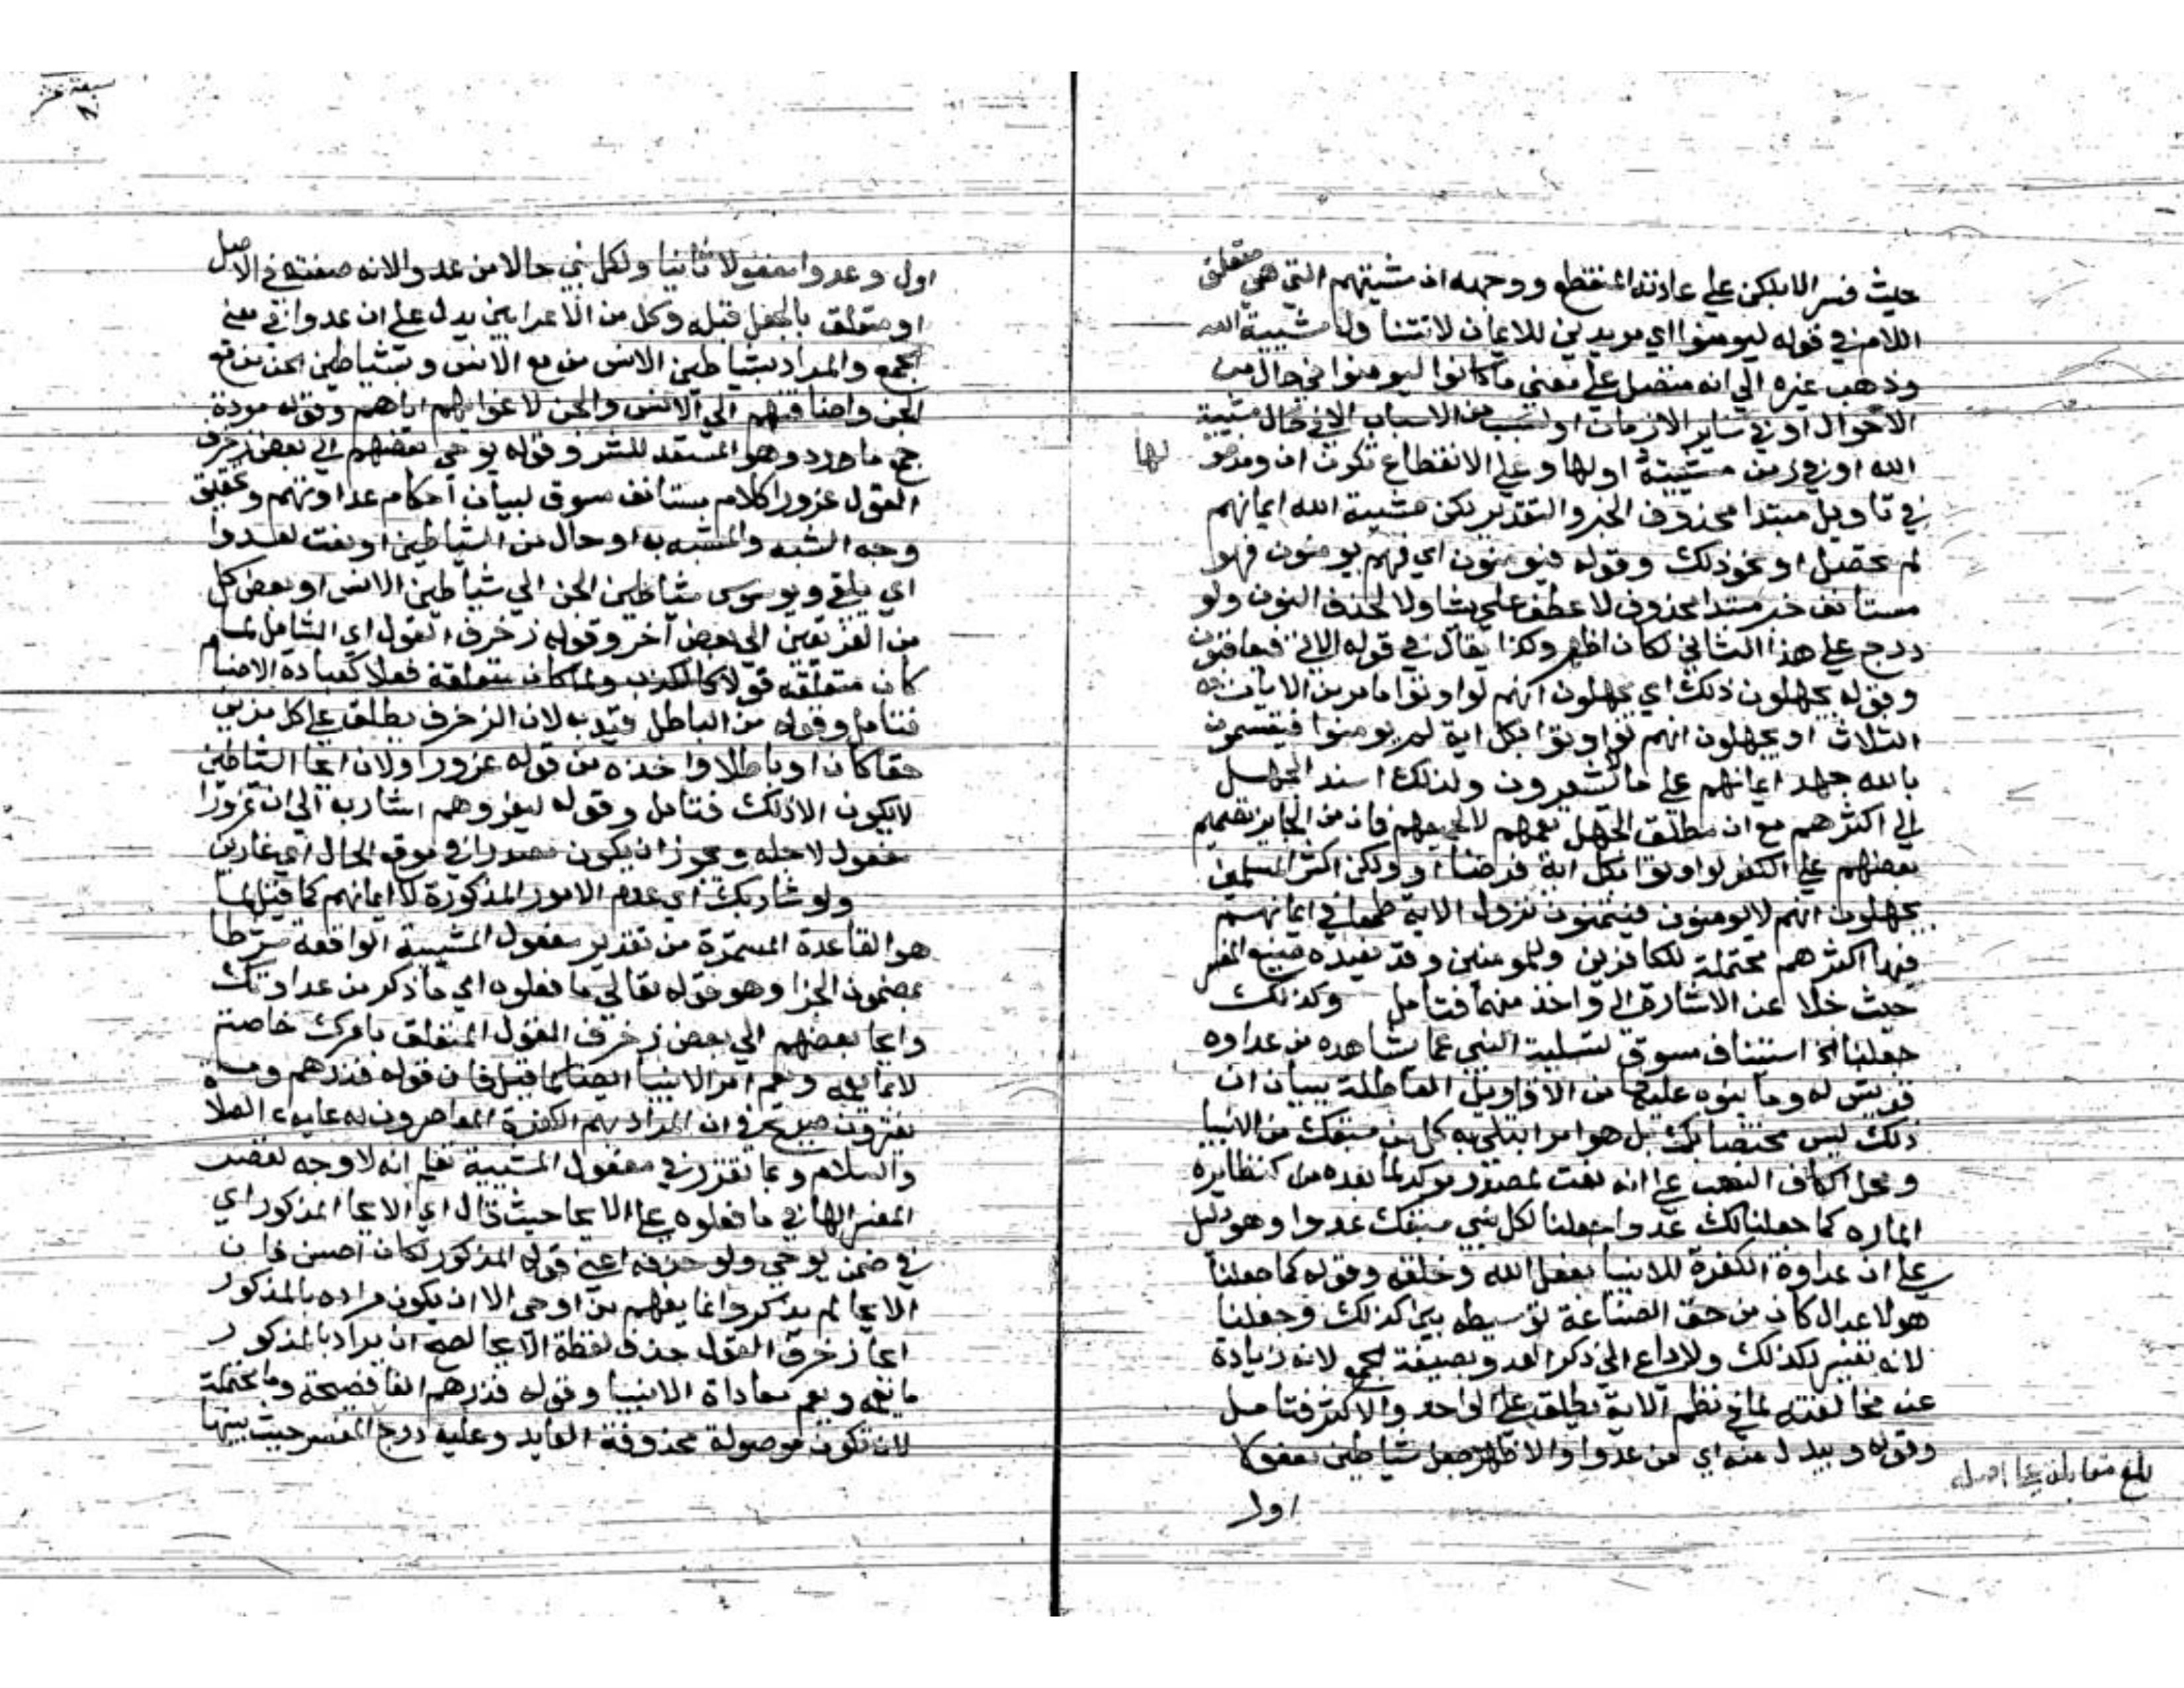 حيث فسر الا بلكن علي عادته المنقطع ووجهه ان مشيتهم التي هي متعلق
اللام في قوله ليومنوا اي مريدين للايمان لا تتنا ولها مشيية الله
وذهب غيره الي انه متصل علي معني ما كانوا ليومنوا في حال من
الاحوال او في ساير الازمان او لسبب من الاسباب الا في حال مشيية
الله او في زمن مشيية اولها وعلي الانقطاع تكون ان ومدخو لها
في تاويل مبتدا محذوف الخبر والتقدير لكن مشيية الله ايمانهم
لم تحصل او نحو ذلك وقوله فيومنون اي فهم يومنون فهو
مستانف خبر مبتدا محذوف لا عطف علي يشا ولا لحذف النون ولو
درج علي هذا الثاني لكان اظهر وكذا يقال في قوله الاتي
وقوله يجهلون ذلك اي يجهلون انهم لو اوتوا ما مر من الايات
الثلاث او يجهلون انهم لو اوتوا بكل اية لم يومنوا فيقسمون
بالله جهد ايمانهم علي ما لا يشعرون ولذلك اسند الجهل
الي اكثرهم مع ان مطلق الجهل يعمهم لا بجهلهم فان من الجايز تصميم
بعضهم علي الكفر لو اوتوا بكل اية فرضا او ولكن اكثر المسلمين
يجهلون انهم لا يومنون فيتمنون نزول الاية طمعا في ايمانهم
فها اكثرهم محتملة للكافرين وللمومنين وقد يفيده صنيع المفسر
حيث خلا عن الاشارة الي واحد منهما فتامل وكذلك
جعلنا الخ استيناف مسوق لتسلية النبي عما يشاهده من عداوة
قريش له وما بنوه عليها من الاقاويل الباطلة ببيان ان
ذلك ليس مختصا بك بل هو امر ابتلي به كل من سبقك من الانبيا
ومحل الكاف النصب علي انه نعت لمصدر موكد لما بعده من كنظايره
الماره كما جعلنا لك عدوا جعلنا لكل نبي سبقك عدوا وهو دليل
علي ان عداوة الكفرة للانبيا بفعل الله وخلقه وقوله كما جعلنا
هولا عدال كان من حق الصناعة توسيطه بين كذلك وجعلنا
لانه تفسير لكذلك ولا داع الي ذكر العدو بصيغة الجمع لانه زيادة
عنه مخالفته لما في نظم الاية يطلق علي الواحد والاكثر فتامل
وقوله وبيدل منه اي من عدوا والاظهر جعل شياطين مفعولا
اول
بلغ مقابلة علي اصله
سبعة عشر
اول وعدوا مفعولا ثانيا ولكل نبي حالا من عدوا لانه صفته في الاصل
او متعلق بالجعل قبله وكل من الاعرابين يدل علي ان عدوا في معني
الجمع والمراد بشياطين الانس من مع الانس وبشياطين الجن من مع
الجن واضافتهم الي الانس والجن لاغوايهم اياهم وقوله مردة
جمع مارد وهو المستعد للشر وقوله يوحي بعضهم الي بعض زخرف
القول غرورا كلام مستانف مسوق لبيان احكام عداوتهم وتحقيق
وجه الشبه والمشبه به او حال من الشياطين او نعت لعدوا
اي يلقي ويوسوس شياطين الجن الي شياطين الانس او بعض كل
من الفريقين الي بعض آخر وقوله زخرف القول اي الشامل لما
كان متعلقه قولا كالكذب ولما كان متعلقه فعلا كعبادة الاصنام
فتامل وقوله من الباطل قيد به لان الزخرف يطلق علي كل مزين
حقا كان او باطلا واخذه من قوله غرورا ولان ايحا الشياطين
لا يكون الا ذلك فتامل وقوله ليغروهم اشار به الي ان غرورا
مفعول لاجله ويجوز ان يكون مصدرا في موقع الحال اي غارين
ولو شا ربك اي عدم الامور المذكورة لا ايمانهم كما قيل لما
هو القاعدة المستمرة من تقدير مفعول المشيية الواقعة شرطا
بمضمون الجزا وهو قوله تعالي ما فعلوه اي ما ذكر من عداوتك
وايحا بعضهم الي بعض زخرف القول المتعلق بامرك خاصة
لا بما يعمه ويعم امر الانبيا ايضا كما قيل فان قوله فذرهم وما
يفترون صريح في ان المراد بهم الكفرة المعاصرون له عليه الصلاة
والسلام وبما تقرر في مفعول المشيية تعلم انه لا وجه لقصر
المفسر الها في ما فعلوه علي الايحا حيث قال اي الايحا المذكور اي
في ضمن يوحي ولو حذف اعني قوله المذكور لكان احسن فان
الايحا لم يذكر وانما يفهم من اوحي الا ان يكون مراده بالمذكور
ايحا زخرف القول حذف لفظة الايحا لصح ان يراد بالمذكور
ما يعمه ويعم معاداة الانبيا وقوله فذرهم الفا فصيحة وما محتملة
لان تكون موصولة محذوفة العايد وعليه درج المفسر حيث بينها